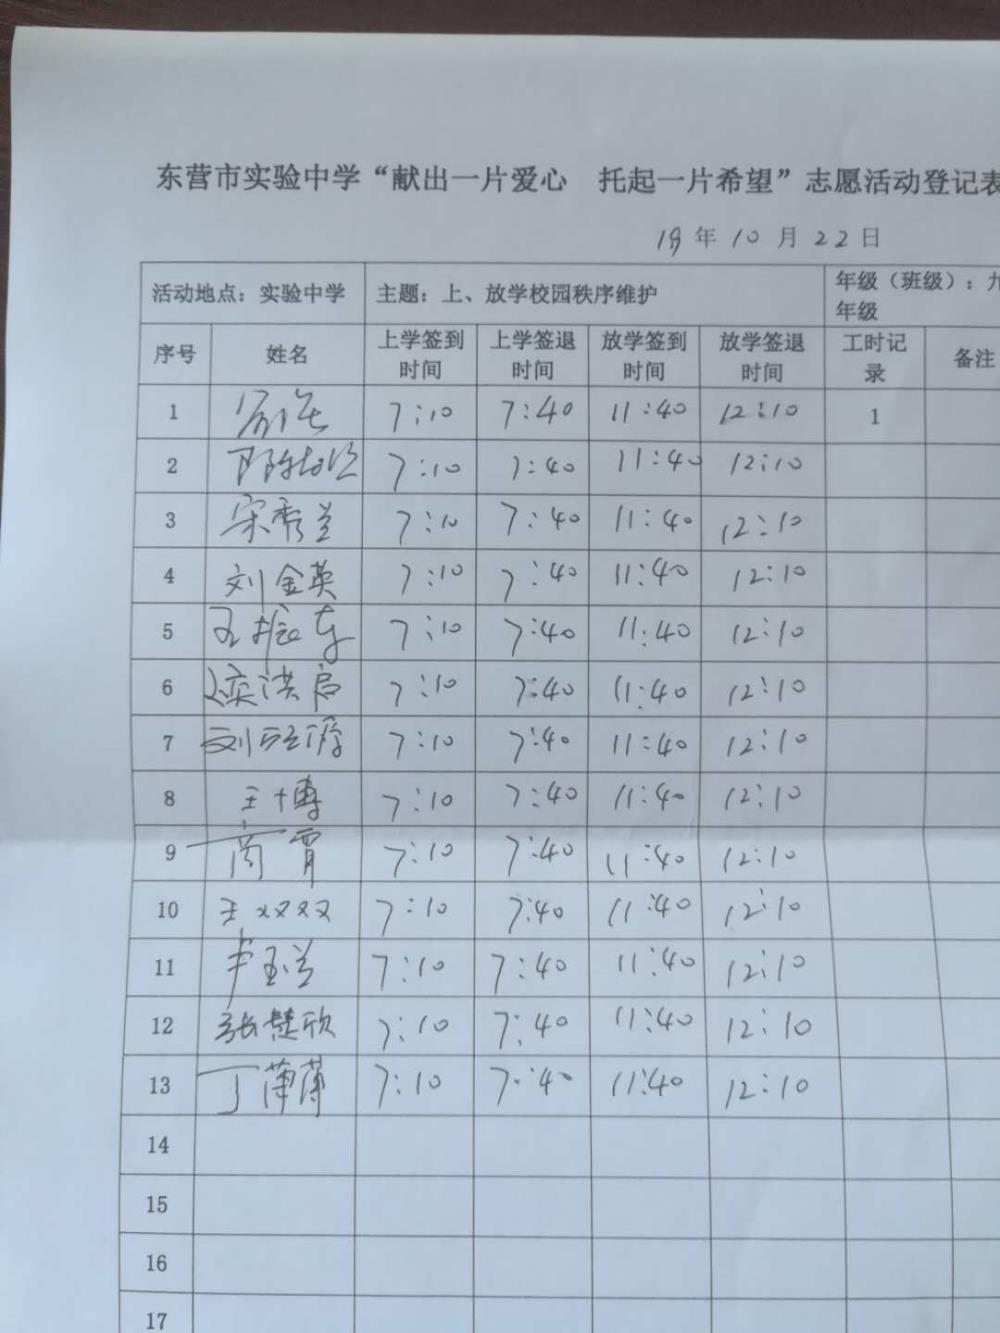 东营市实验中学“献出一片爱心 托起一片希望”志愿活动登记表
19年10月22日
活动地点：实验中学 主题：上、放学校园秩序维护 年级（班级）：九年级
序号 姓名 上学签到时间 上学签退时间 放学签到时间 放学签退时间 工时记录 备注
1 7:10 7:40 11:40 12:10 1
2 7:10 7:40 11:40 12:10
3 宋秀兰 7:10 7:40 11:40 12:10
4 刘金英 7:10 7:40 11:40 12:10
5 7:10 7:40 11:40 12:10
6 栾洪启 7:10 7:40 11:40 12:10
7 刘 7:10 7:40 11:40 12:10
8 王博 7:10 7:40 11:40 12:10
9 商霄 7:10 7:40 11:40 12:10
10 王双双 7:10 7:40 11:40 12:10
11 芦玉兰 7:10 7:40 11:40 12:10
12 张慧欣 7:10 7:40 11:40 12:10
13 丁萍萍 7:10 7:40 11:40 12:10
14
15
16
17